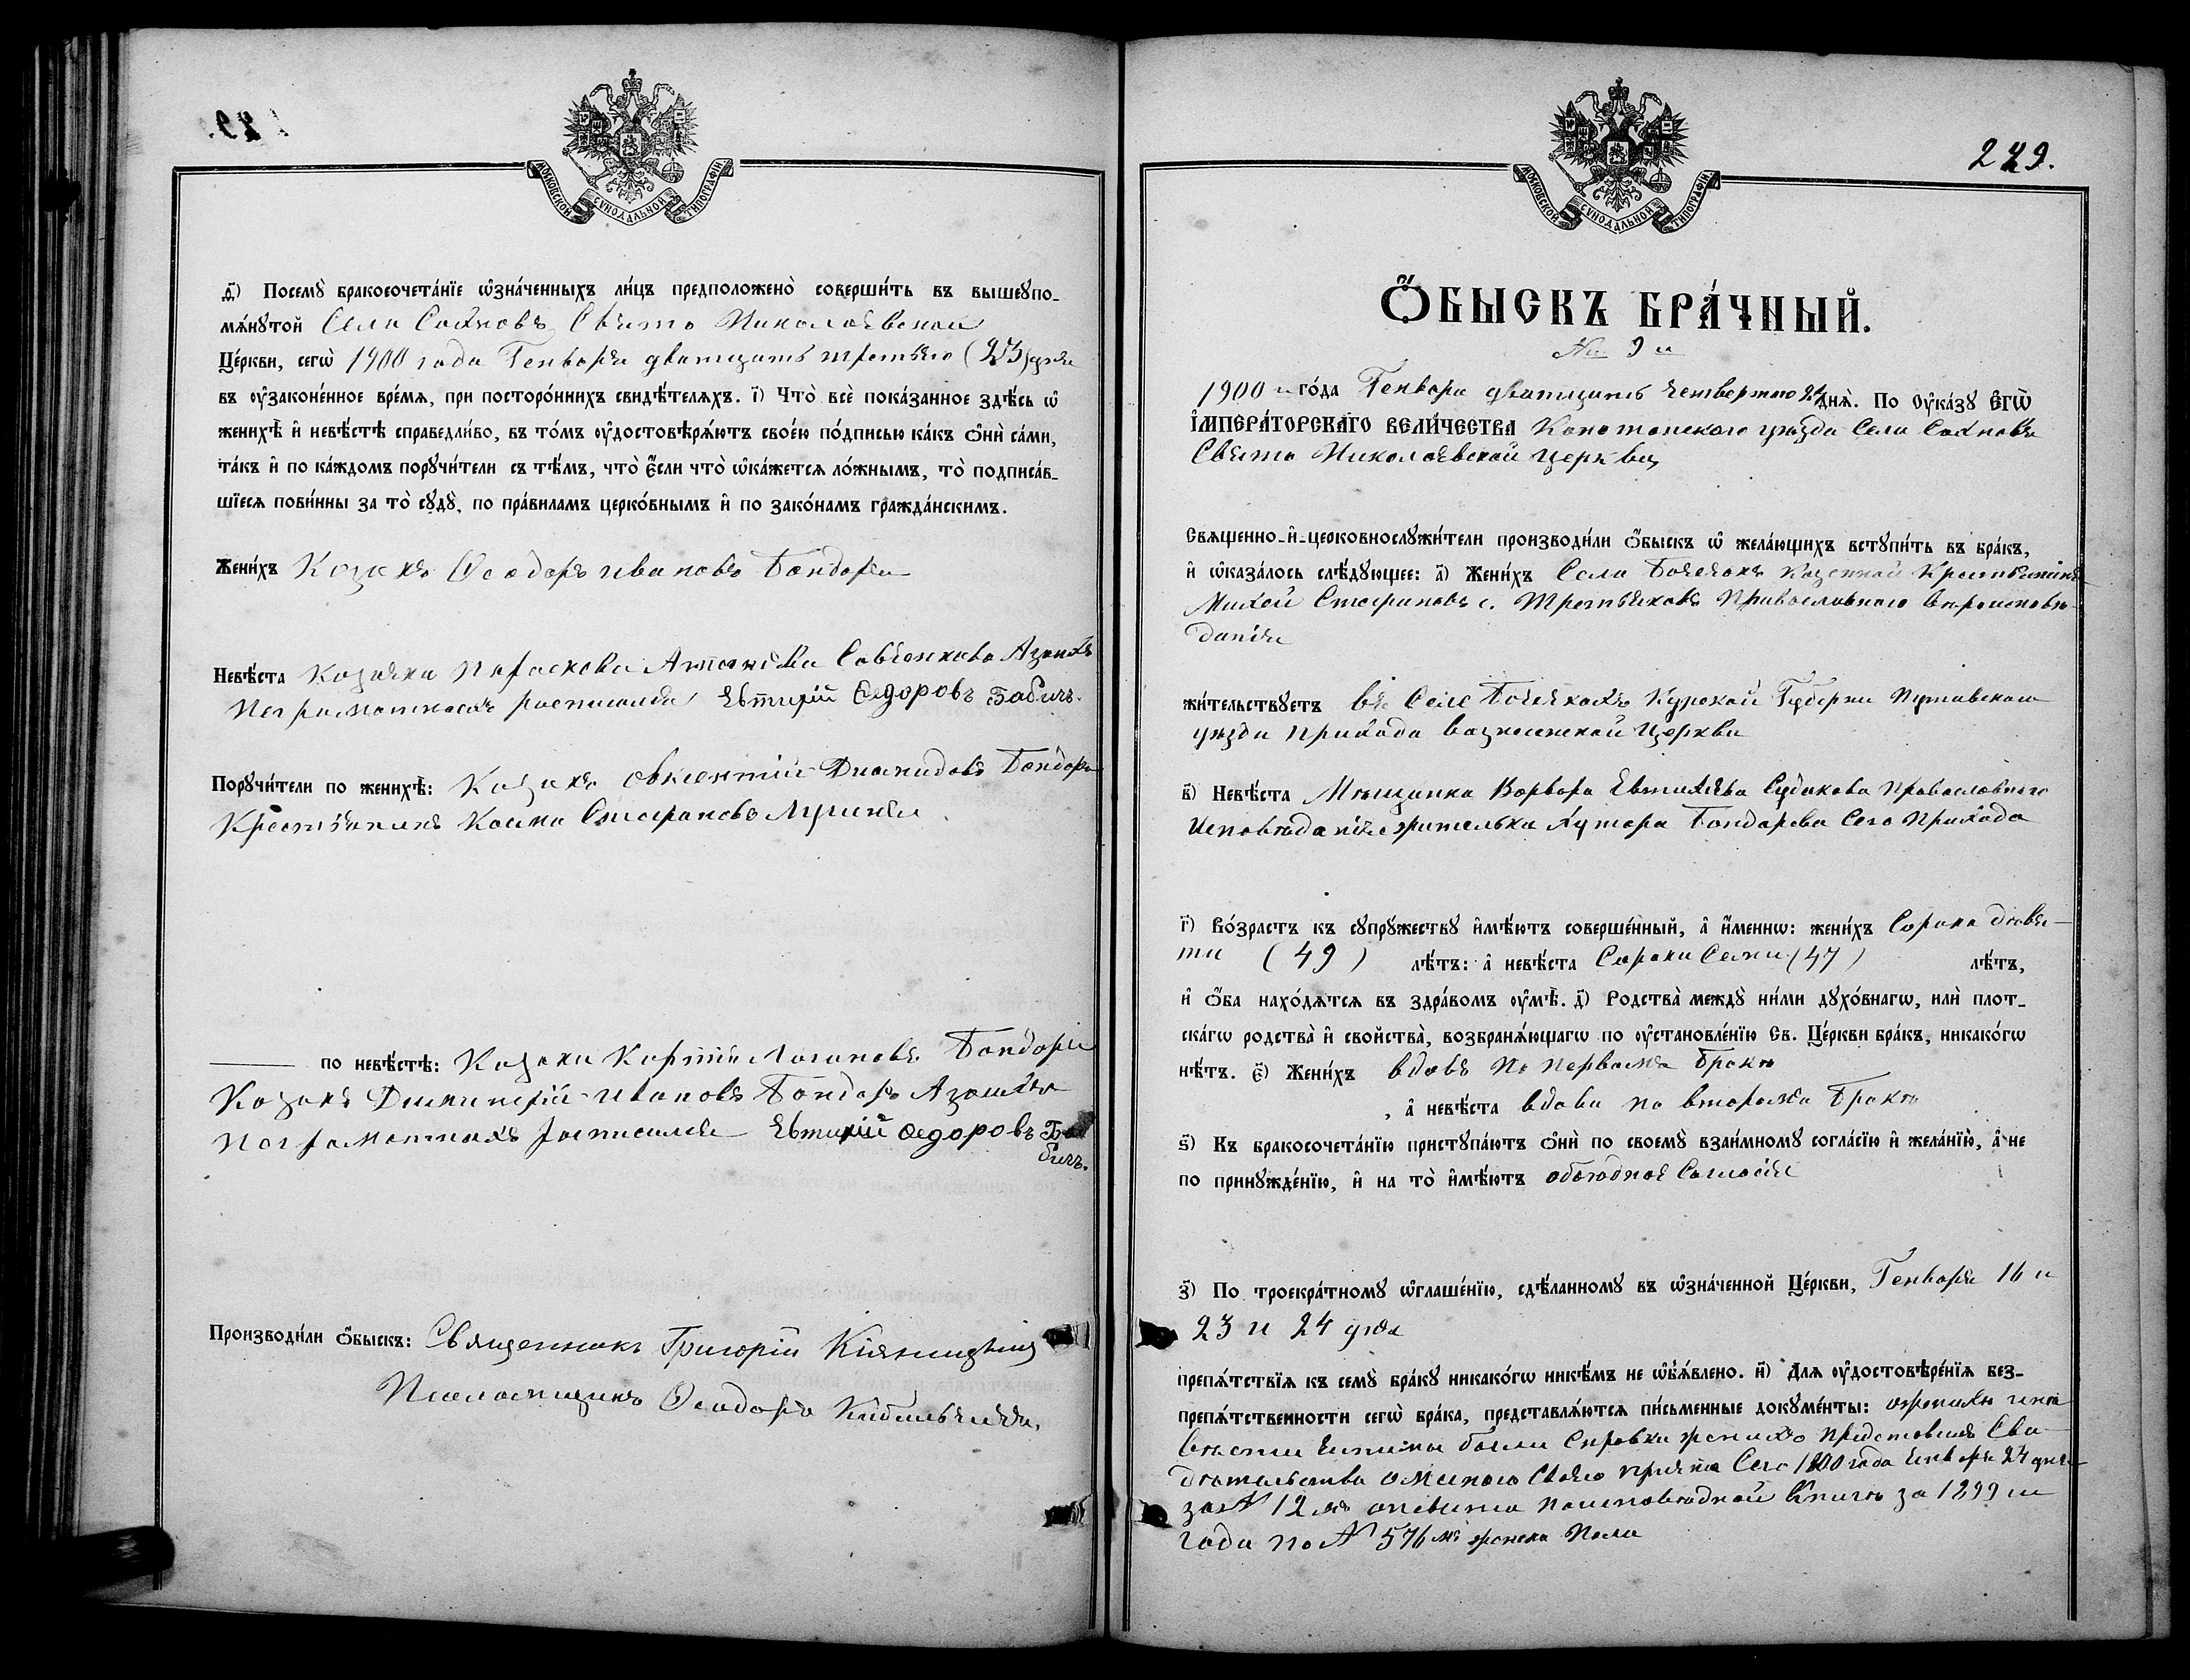 МОСКОВСКОЙ СѴНОДАЛЬНОЙ ТИПОГРАФІИ
ѳ҃) Посемꙋ̀ бракосочета́нїе ѡ҆зна́ченныхъ ли́цъ предположено̀ соверши́ть въ вышеꙋпо-
мѧ́нꙋтой Села Сахновъ Свято Николаевской
Це́ркви, сегѡ̀ 1900 года Генваря дватцать третьяго (23) дня
въ ѹ҆зако́ненное вре́мѧ, при посторо́ннихъ свидѣ́телѧхъ. і҃) Что̀ всѐ пока́занное здѣ́сь ѡ҆
женихѣ̀ и҆ невѣ́стѣ справедли́во, въ то́мъ ѹ҆достовѣрѧ́ютъ свое́ю по́дписью ка́къ ѻ҆нѝ са́ми,
та́къ и҆ по ка́ждомъ порꙋчи́тели съ тѣ́мъ, что̀ є҆́сли что̀ ѡ҆ка́жетсѧ ло́жнымъ, то̀ подписа́в-
шїесѧ пови́нны за то̀ сꙋдꙋ̀, по пра́виламъ церко́внымъ и҆ по зако́намъ гражда́нскимъ.
Жени́хъ Козакъ Ѳеодоръ Ивановъ Бондарь
Невѣ́ста Козачка Параскева Савченкова А за нихъ
Неграмотныхъ росписался Евтихій Ѳедоровъ Бабичъ.
Порꙋчи́тели по женихѣ̀: Козакъ Діомидовъ Бондарь
Крестьянинъ Косма Стефановъ
по невѣ́стѣ: Козаки Логиновъ Бондарь
Козакъ Димитрій Ивановъ Бондарь А за нихъ
неграмотныхъ росписался Евтихій Ѳедоровъ Ба
бичъ.
Производи́ли ѻ҆́быскъ: Священникъ Григорій Кіяницынъ
Псаломщикъ Ѳеодоръ
229.
МОСКОВСКОЙ СѴНОДАЛЬНОЙ ТИПОГРАФІИ
Ѻ҆́БЫСКЪ БРА́ЧНЫЙ.
№ 9 й
1900 го́да Генваря дватцать четвертого 24 днѧ̀. По Ѹ҆ка́зꙋ Є҆ГѠ̀
І҆МПЕРА́ТОРСКАГО ВЕЛИ́ЧЕСТВА Конотопского уѣзда Села Сахновъ
Свято Николаевской церкви
Свѧщенно-и҆-церковнослꙋжи́тели производи́ли ѻ҆́быскъ ѡ҆ жела́ющихъ встꙋпи́ть въ бра́къ,
и҆ ѡ҆каза́лось слѣ́дꙋющее: а҃) Жени́хъ Села Бочечокъ Козенной Крестьянинъ
Михей Стефановъ с. Третьяковъ Православного вѣроисповѣ-
данія
жи́тельствꙋетъ въ Селе Бочечкахъ Курской Губерни Путивского
уѣзда прихода вознесенской Церкви
в҃) Невѣ́ста Мѣщанка Варвара Евтихіева Судакова Православного
Исповѣданія жителька Хутора Бондарева Сего Прихода
г҃) Во́зрастъ къ сꙋпрꙋ́жествꙋ и҆мѣ́ютъ соверше́нный, а҆ и҆́меннѡ: жени́хъ Сорока девя-
ти (49) лѣ́тъ: а҆ невѣ́ста Сорока Семи (47) лѣ́тъ,
и҆ ѻ҆́ба нахо́дѧтсѧ въ здра́вомъ ѹ҆мѣ̀. д҃) Родства̀ междꙋ̀ ни́ми дꙋхо́внагѡ, илѝ плот-
ска́гѡ родства̀ и҆ свойства̀, возбранѧ́ющагѡ по ѹ҆становле́нїю Св. Це́ркви бра́къ, никако́гѡ
нѣ́тъ. є҃) Жени́хъ вдовъ По первомъ Бракѣ
, а҆ невѣ́ста вдова по второмъ Бракѣ
ѕ҃) Къ бракосочета́нїю пристꙋпа́ютъ ѻ҆нѝ по своемꙋ̀ взаи́мномꙋ согла́сїю и҆ жела́нїю̀, а҆ не
по принꙋжде́нїю, и҆ на то̀ и҆мѣ́ютъ обоюдное Согласіе
з҃) По троекра́тномꙋ ѡ҆глаше́нїю, сдѣ́ланномꙋ въ ѡ҆зна́ченной Це́ркви, Генваря 16 и
23 и 24 дня
препѧ́тствїѧ къ семꙋ̀ бра́кꙋ никако́гѡ никѣ́мъ не ѡ҆б̾ѧ́влено. и҃) Длѧ ѹ҆достовѣре́нїѧ без-
препѧ́тственности сегѡ̀ бра́ка, представлѧ́ютсѧ пи́сьменные докꙋме́нты: о женихѣ и не
вѣсти были Справки женихъ представилъ Сви-
дѣтельство Своего причта Сего 1900 года Генваря 24 дня
за № 12 мъ а невѣста по исповѣдной Книгѣ за 1899 й
года по № 576 мъ женска Пола